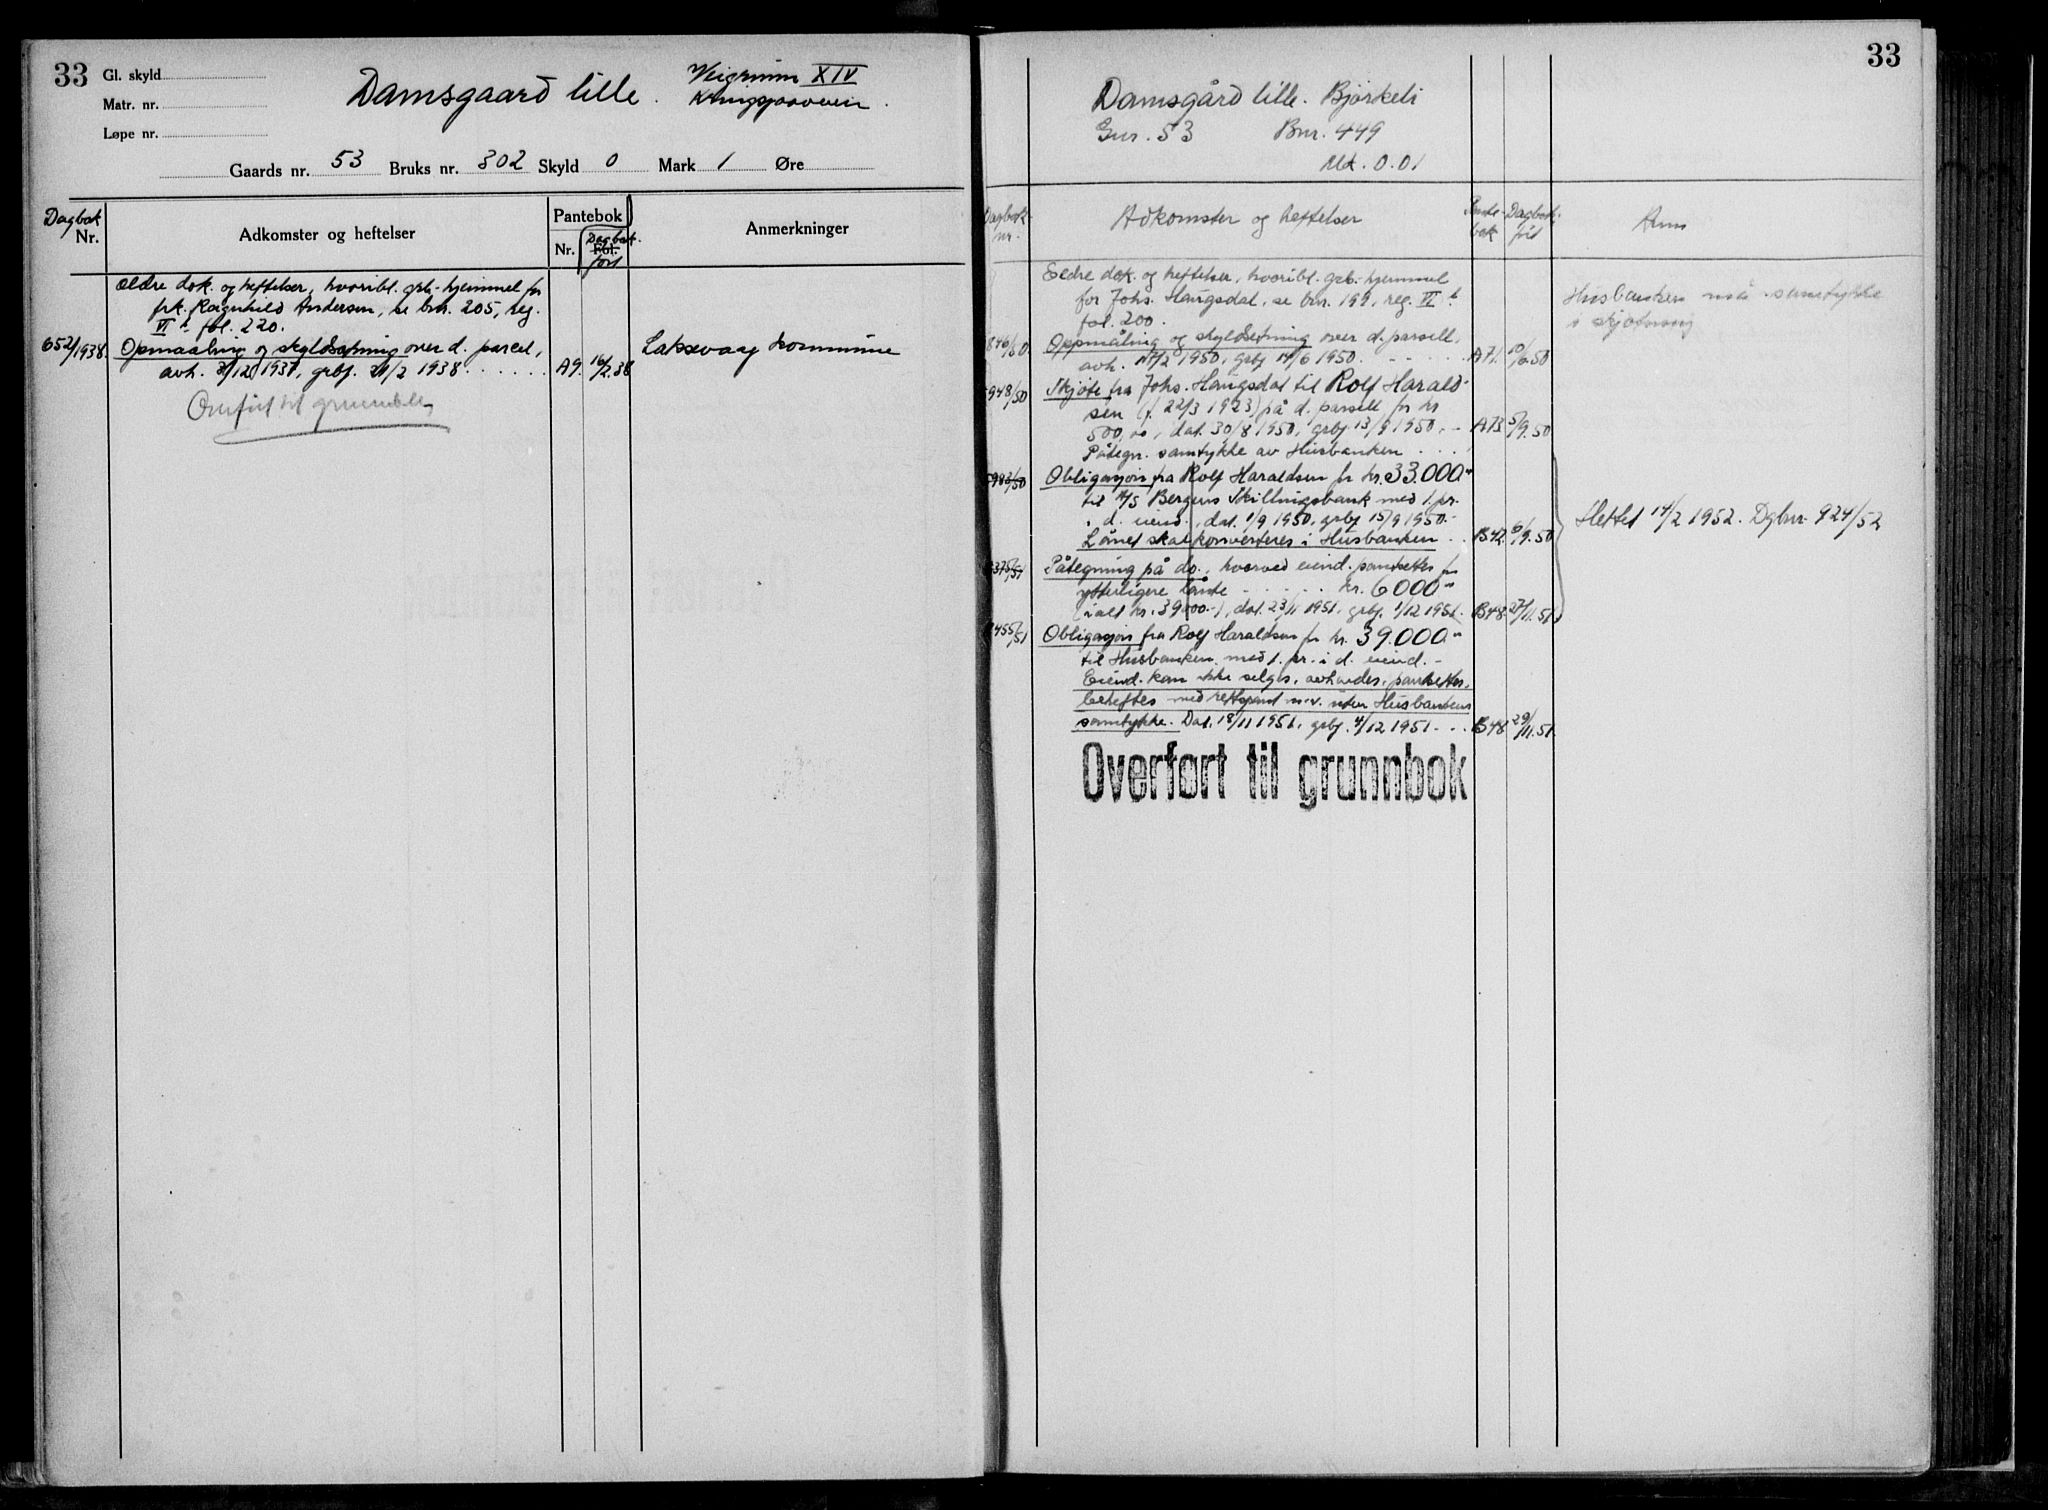 33
Gl. skyld
Matr. nr.
Løpe nr.
Damsgaard lille.
XIV
Gaards nr. 53 Bruks nr. 302 Skyld 0 Mark 1 Øre
Dagbok Nr.
Adkomster og heftelser
Pantebok
Nr. Fol. Dagbok ført
Anmerkninger
Ældre dok. og heftelser, hvoribl. grb-hjemmel for
frk. Ragnhild Andersen, se bnr. 205, reg.
VI b fol. 220.
652/1938. Opmaaling og skyldsetning over d. parcel,
avh. 3/12 1937, grbf. 21/2 1938 . . . . . . A9. 16/2.38 Laksevaag kommune
Overført til
33
Damsgård lille. Bjørkeli
Gnr. 53 Bnr. 449
Mk. 0.01
Dagbok nr.
Adkomster og heftelser
Pantebok
Dagbok ført
Anm
Eldre dok. og heftelser, hvoribl. grb-hjemmel
for Johs. Haugsdal, se bnr. 199, reg. VI b
fol. 200.
Husbanken må samtykke
i skjøtning
846/50 Oppmåling og skyldsetning over d. parsell,
avh. 17/2 1950, grbf 14/6 1950. . . . . . A71. 10/6.50
948/50 Skjøte fra Johs. Haugsdal til Rolf Harald-
sen (f. 22/3 1923) på d. parsell for kr
500,00, dat. 30/8 1950, grbf 13/9 1950. - A73 5/9.50
Påtegn. samtykke av Husbanken . . . .
983/50 Obligasjon fra Rolf Haraldsen for kr. 33.000.-
til A/S Bergens Skillingsbank med 1. pr.
i d. eiend., dat. 1/9 1950, grbf 15/9 1950.-
Lånet skal konverteres i Husbanken . . B42. 6/9.50
Slettet 14/2 1952. Dgbnr. 924/52
375/51 Påtegning på do., hvorved eiend. pantsettes for
ytterligere lånte . . . . . . kr. 6000.-
(ialt kr. 39000.-), dat. 23/11 1951, grbf. 1/12 1951. B48. 27/11.51
455/51 Obligasjon fra Rolf Haraldsen for kr. 39.000.-
til Husbanken med 1. pr. i d. eiend. -
Eiend. kan ikke selges, avhendes, pantsettes,
beheftes med rettspant m.v. uten Husbankens
samtykke. Dat. 18/11 1951, grbf. 4/12 1951 . . . B48 29/11.51
Overført til grunnbok